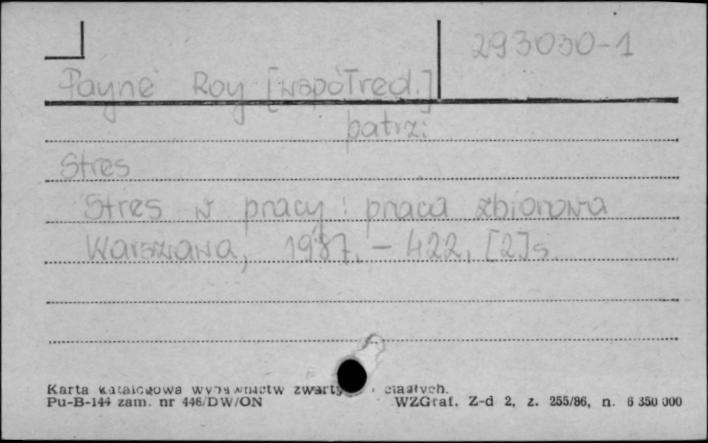 293030-1
Payne Roy [współred.]
patrz:
Stres
Stres w pracy : praca zbiorowa
Warszawa, 1987. – 422, [2] s.
Karta katalogowa wydawnictw zwartych ciągłych.
Pu-B-144 zam. nr 446/DW/ON WZGraf. Z-d 2, z. 255/86, n. 6 350 000